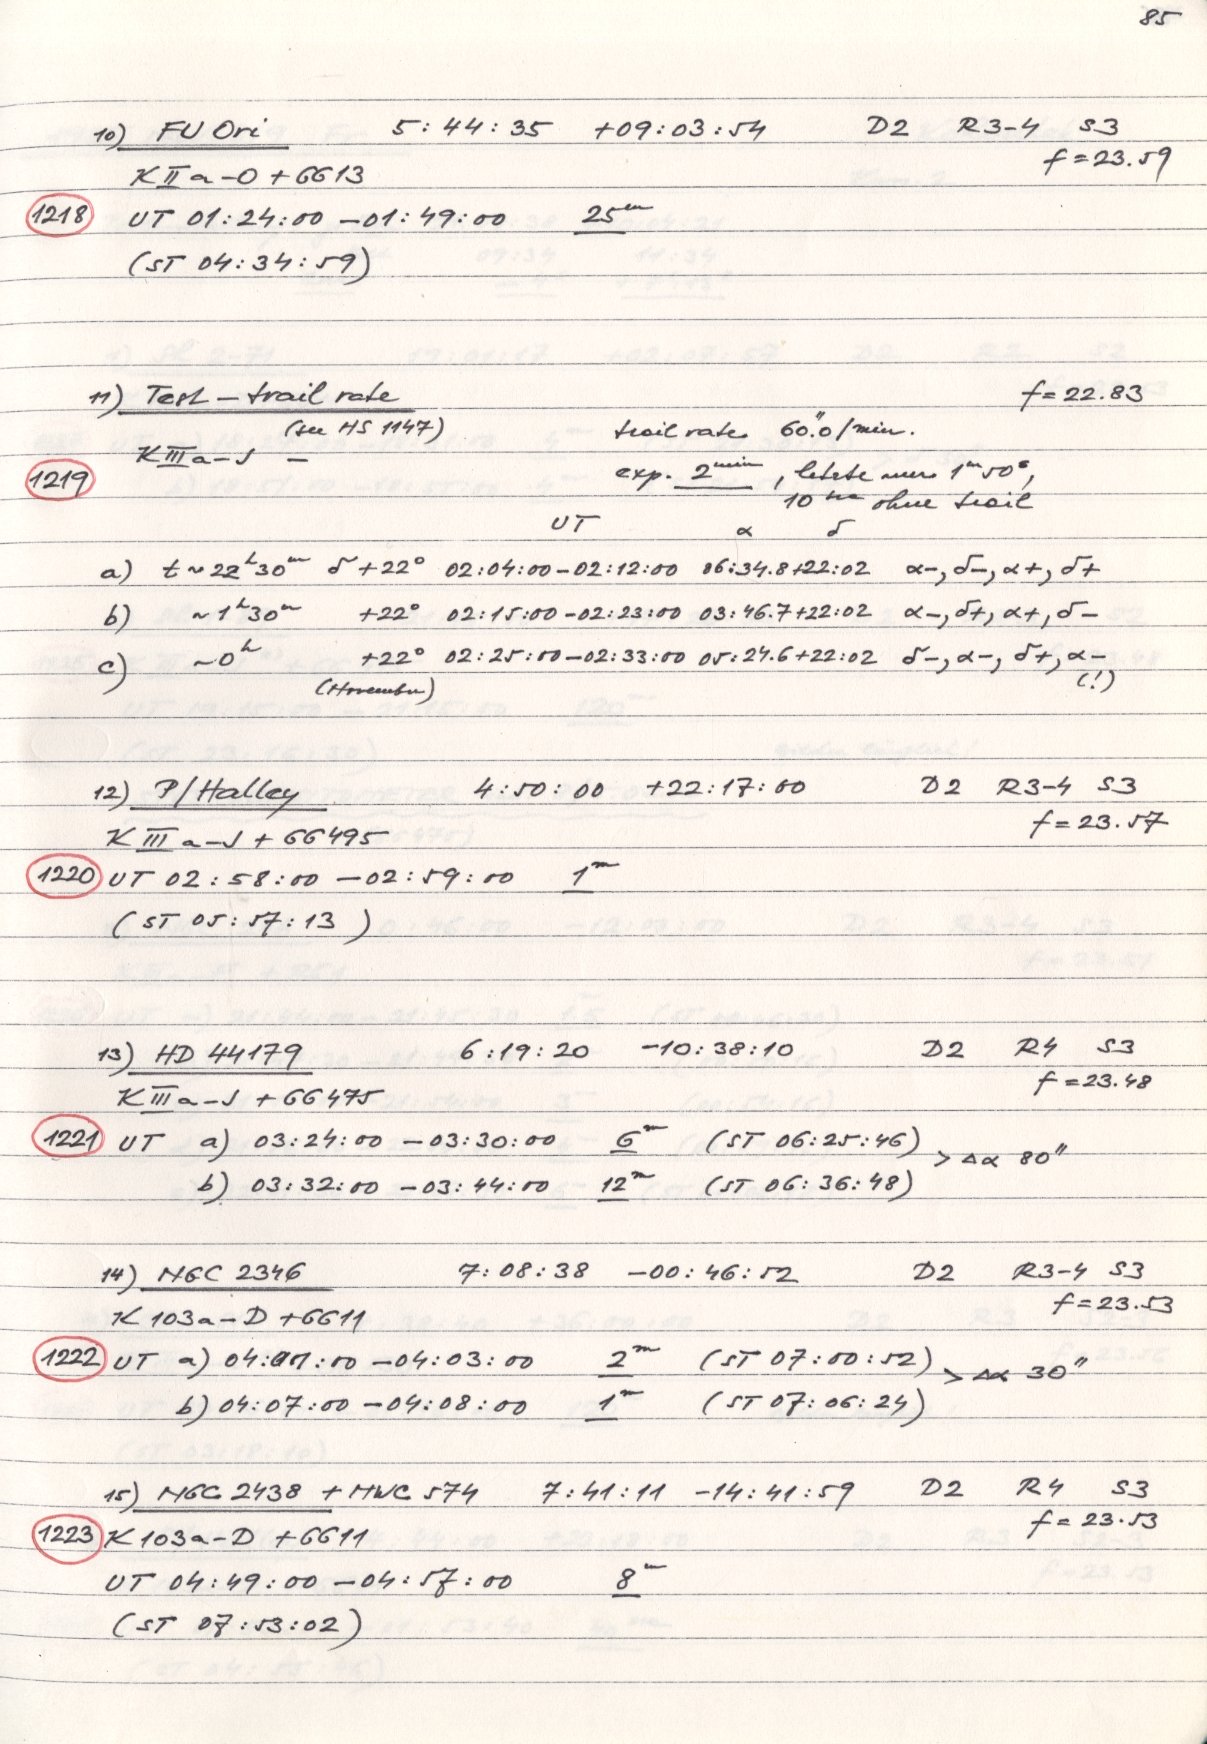 85
10) FU Ori 5:44:35 +09:03:54 D2 R3-4 S3
f=23.59
K IIa-O + GG13
1218 UT 01:24:00 -01:49:00 25m
(ST 04:34:59)
11) Test-trail rate f=22.83
(see HS 1147) trail rate 60".0/min.
K IIIa-J -
1219 exp. 2min, letzte nur 1m50s,
10sec ohne trail
UT α δ
a) t~22h30m δ+22° 02:04:00-02:12:00 06:34.8+22:02 α-, δ-, α+, δ+
b) ~1h30m +22° 02:15:00-02:23:00 03:46.7+22:02 α-, δ+, α+, δ-
c) ~0h +22° 02:25:00-02:33:00 05:24.6+22:02 δ-, α-, δ+, α-
(November) (!)
12) P/Halley 4:50:00 +22:17:00 D2 R3-4 S3
f=23.57
K IIIa-J + GG495
1220 UT 02:58:00 -02:59:00 1m
(ST 05:57:13)
13) HD 44179 6:19:20 -10:38:10 D2 R4 S3
f=23.48
K IIIa-J + GG475
1221 UT a) 03:24:00 -03:30:00 6m (ST 06:25:46)
> Δα 80"
b) 03:32:00 -03:44:00 12m (ST 06:36:48)
14) NGC 2346 7:08:38 -00:46:52 D2 R3-4 S3
f=23.53
K 103a-D + GG11
1222 UT a) 04:01:00 -04:03:00 2m (ST 07:00:52)
> Δα 30"
b) 04:07:00 -04:08:00 1m (ST 07:06:24)
15) NGC 2438 + MWC 574 7:41:11 -14:41:59 D2 R4 S3
f=23.53
1223 K 103a-D + GG11
UT 04:49:00 -04:57:00 8m
(ST 07:53:02)